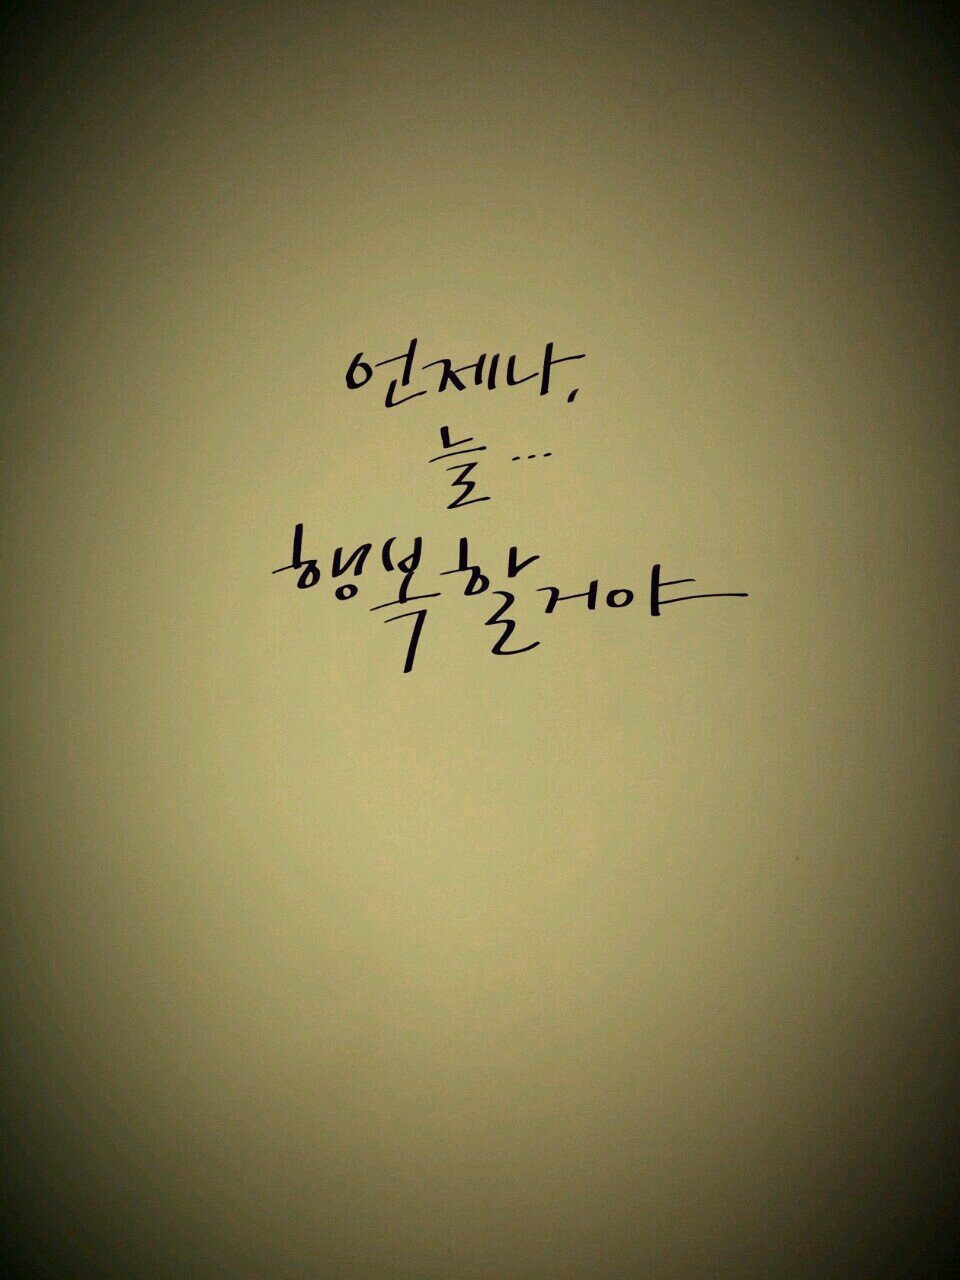 언제나,
늘...
행복할거야